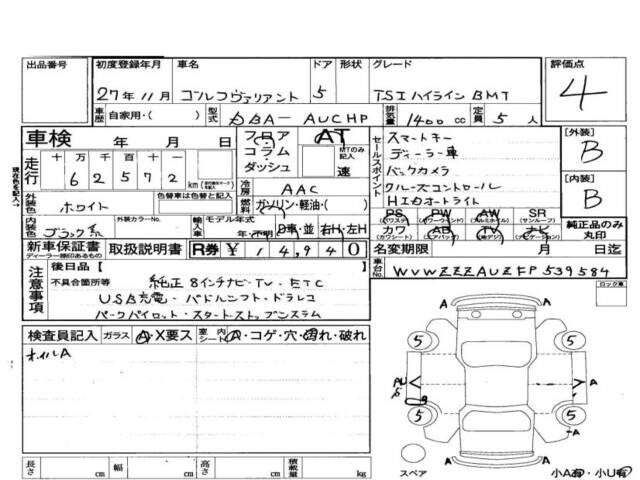 出品番号 初度登録年月 車名 ドア 形状 グレード 評価点
27年11月 ゴルフヴァリアント 5 TSIハイラインBMT 4
車歴 自家用・( ) 型式 DBA- AUCHP 排気量 1400cc 定員 5人
車検 年 月 日 フロア コラム・ダッシュ AT MTのみ記入 速
走行 十万 万 千 百 十 一
6 2 5 7 2 km
現在の名を記入→
外装色 ホワイト 色替車は色替と記入
冷房 AAC
燃料 ガソリン・軽油・( )
内装色 ブラック系 外装カラーNo. 輸入車 モデル年式 年・不明 D車・並 右H・左H
セールスポイント
スマートキー
ディーラー車
バックカメラ
クルーズコントロール
HIDオートライト
[外装] B
[内装] B
PS (パワステ) PW (パワーウインド) AW (アルミホイル) SR (サンルーフ)
カワ (カワシート) AB (エアバッグ) TV (テレビ) ナビ (ナビゲーション)
純正品のみ丸印
新車保証書 ディーラー印のあるもの 取扱説明書 R券 ¥14,940
名変期限 月 日迄
車台No. WVWZZZAUZFP539584
ロック車
注意事項 後日品【 】
不具合箇所等 純正8インチナビ・TV・ETC
USB充電・パドルシフト・ドラレコ
パークパイロット・スタートストップシステム
検査員記入 ガラス A・X要ス 室内シート A・コゲ・穴・切れ・破れ
ホイルA
5 5
A
AU
5
A
5 5
A
A
スペア
長さ cm 幅 cm 高さ cm 積載量 kg
小A有・小U有